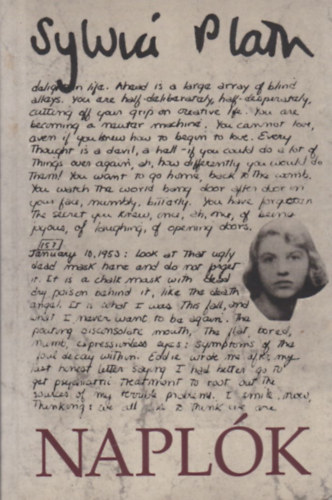 Sylvia Plath
delight in life. Ahead is a large array of blind
alleys. You are half-deliberately, half-desperately,
cutting off your grip on creative life. You are
becoming a neuter machine. You cannot love,
even if you knew how to begin to love. Every
Thought is a devil, a hell - if you could do a lot of
Things over again, ah, how differently you would do
Them! You want to go home, back to the womb.
You watch the world bang door after door in
your face, numbly, bitterly. You have forgotten
The secret you knew, once, ah, once, of being
joyous, of laughing, of opening doors.
157
January 10, 1953: Look at That ugly
dead mask here and do not forget
it. It is a chalk mask with dead
dry poison behind it, like the death
angel. It is what I was this fall, and
what I never want to be again. The
pouting disconsolate mouth, The flat, bored,
numb, expressionless eyes: symptoms of the
foul decay within. Eddie wrote me after my
last honest letter saying I had better go to
get psychiatric Treatment to root out the
sources of my terrible problems. I smile, now,
Thinking: we all like to think we are
NAPLÓK